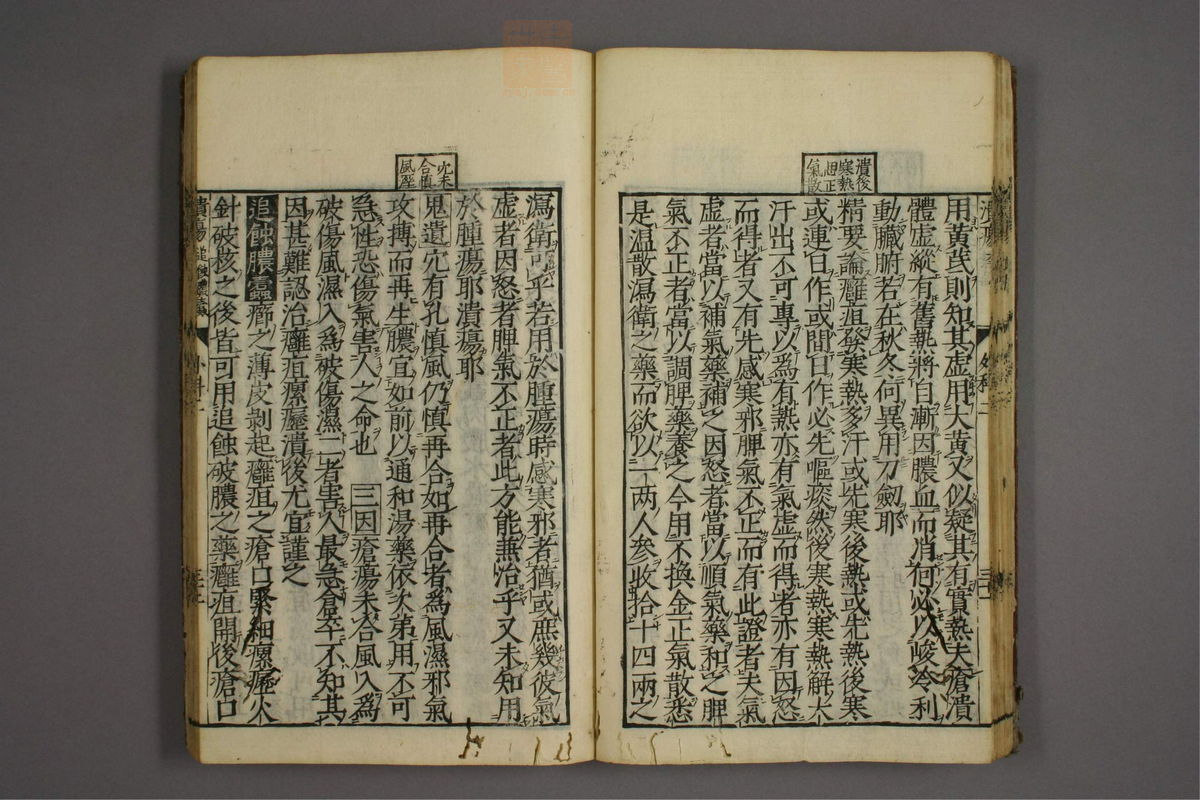 潰後
寒熱
但正
氣散
用黄芪則知其虚用大黄又似疑其有實熱夫瘡潰
體虚縱有舊熱將自漸因膿血而消何必以峻冷利
動臟腑若在秋冬何異用刀劔耶
精要論癰疽發寒熱多汗或先寒後熱或先熱後寒
或連日作或間日作必先嘔痰然後寒熱寒熱解大
汗出不可專以爲有熱亦有氣虚而得者亦有因怒
而得者又有先感寒邪脾氣不正而有此證者夫氣
虚者當以補氣藥補之因怒者當以順氣藥和之脾
氣不正者當以調脾藥養之今用不換金正氣散悉
是温散瀉衛之藥而欲以一两人参收拾十四兩之
瀉衛可乎若用於腫瘍時感寒邪者猶或庶幾彼氣
虚者因怒者脾氣不正者此方能兼治乎又未知用
於腫瘍耶潰瘍耶
未
合慎
風濕
鬼遺穴有孔慎風仍慎再合如再合者爲風濕邪氣
攻摶而再生膿宜如前以通和湯藥依次第用不可
急性恐傷氣害人之命也 三因瘡瘍未合風入爲
破傷風濕入爲破傷濕二者害人最急倉卒不知其
因甚難認治癰疽瘰癧潰後尤宜謹之
追蝕膿蠹癤之薄皮剝起癰疽之瘡口緊細瘰癧火
針破核之後皆可用追蝕破膿之藥癰疽開後瘡口
潰瘍 追蝕膿蠹 外科二